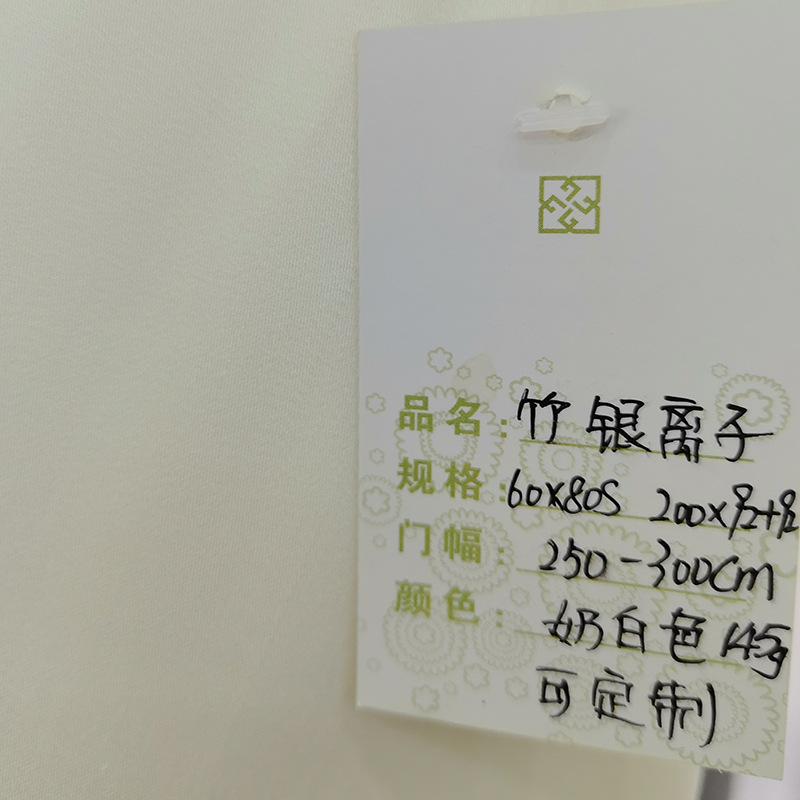 品名：竹银离子
规格：60X80S 200X92+92
门幅：250-300cm
颜色：奶白色 145g
可定制